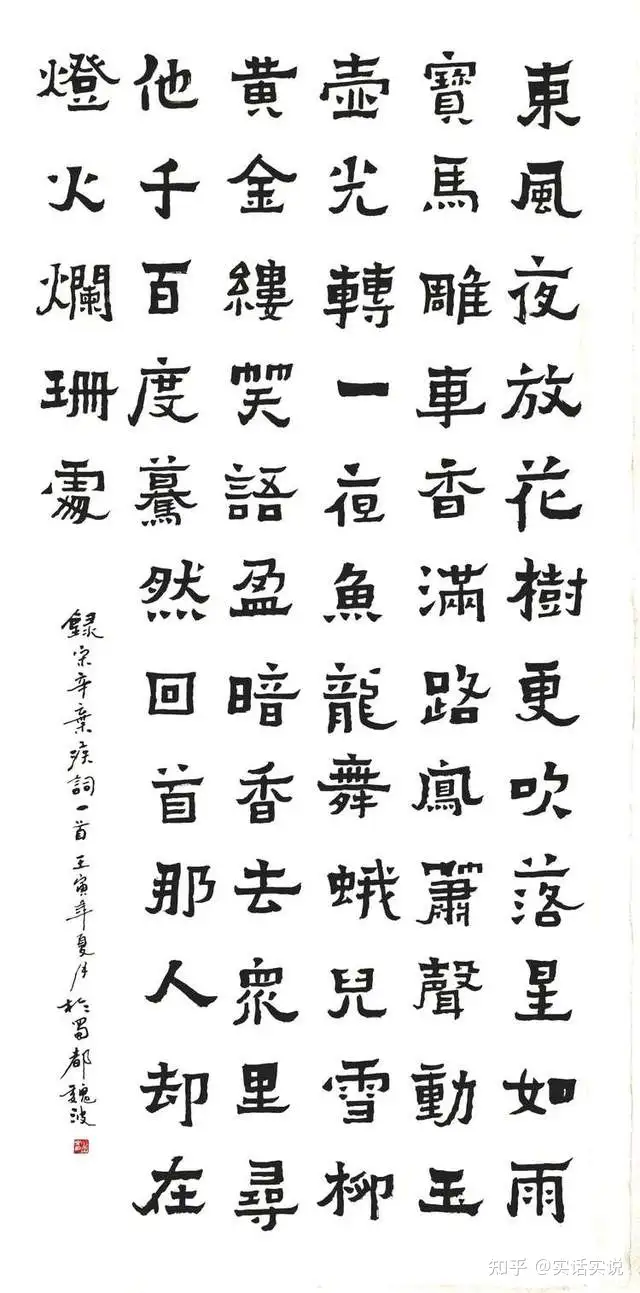 東風夜放花樹更吹落星如雨
寶馬雕車香滿路鳳簫聲動玉
壺光轉一夜魚龍舞蛾兒雪柳
黄金縷笑語盈暗香去眾里尋
他千百度驀然回首那人却在
燈火爛珊處
録宋辛棄疾詞一首壬寅年夏月於蜀都魏波
知乎 @实话实说